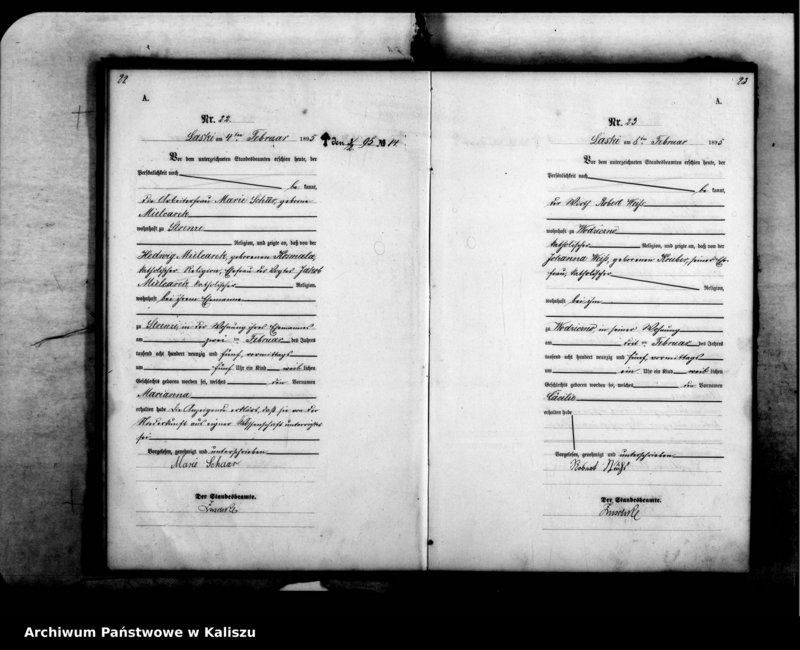 22
A.
Nr. 22.
Laski am 4ten Februar 1895
Vor dem unterzeichneten Standesbeamten erschien heute, der
Persönlichkeit nach
be kannt,
die Arbeiterfrau Marie Schaar, geborene
Mielcarek
wohnhaft zu Strenze
Religion, und zeigte an, daß von der
Hedwig Mielcarek, geborenen Kosmala,
katholischer Religion, Ehefrau des Vogtes Jakob
Mielcarek katholischer Religion,
wohnhaft bei ihrem Ehemanne
zu Strenze, in der Wohnung ihres Ehemannes
am zwei ten Februar des Jahres
tausend acht hundert neunzig und fünf, vormittags
um fünf Uhr ein Kind weib lichen
Geschlechts geboren worden sei, welches den Vornamen
Marianna
erhalten habe. Die Anzeigende erklärt, daß sie von der
Niederkunft aus eigner Wissenschaft unterrichtet
sei
Vorgelesen, genehmigt und unterschrieben
Marie Schaar
Der Standesbeamte.
23
A.
Nr. 23
Laski am 5ten Februar 1895
Vor dem unterzeichneten Standesbeamten erschien heute, der
Persönlichkeit nach
be kannt,
der Wirth Robert Weiß
wohnhaft zu Wodziczno
katholischer Religion, und zeigte an, daß von der
Johanna Weiß, geborenen Kruber, seiner Ehe-
frau, katholischer
Religion,
wohnhaft bei ihm
zu Wodziczno, in seiner Wohnung
am drei ten Februar des Jahres
tausend acht hundert neunzig und fünf, vormittags
um ein Uhr ein Kind weib lichen
Geschlechts geboren worden sei, welches den Vornamen
Cäcilie
erhalten habe
Vorgelesen, genehmigt und unterschrieben
Robert
Der Standesbeamte.
Archiwum Państwowe w Kaliszu